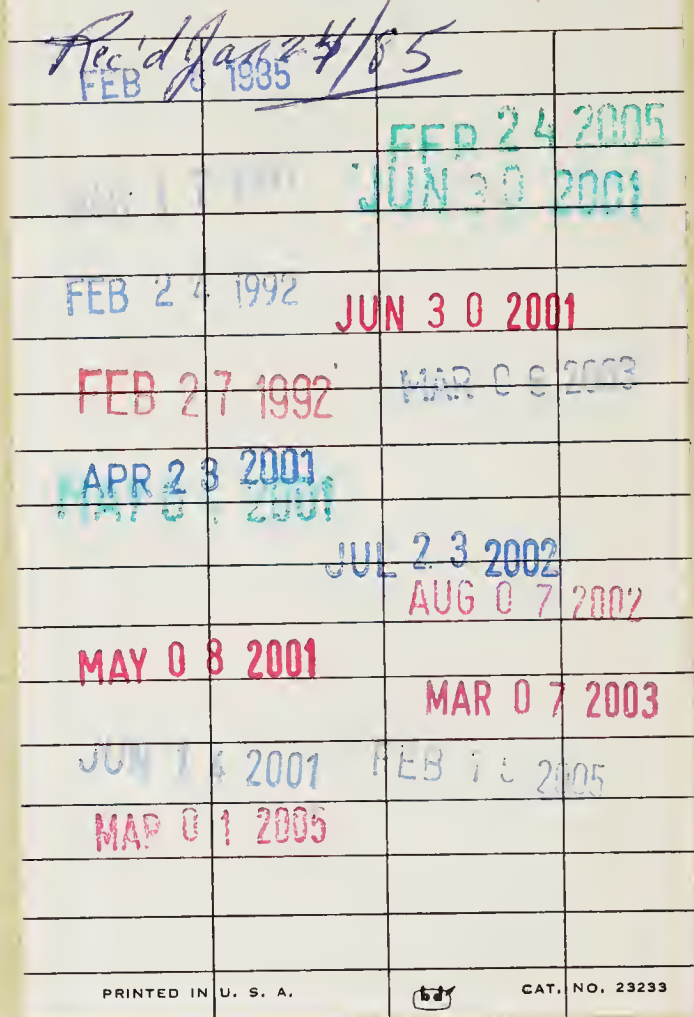 Rec'd Jan 24/85
FEB 1985
FEB 24 2005
JUN 30 2001
FEB 24 1992
JUN 30 2001
FEB 27 1992
MAR 2003
APR 23 2001
MAY 2001
JUL 23 2002
AUG 07 2002
MAY 08 2001
MAR 07 2003
JUN 14 2001
FEB 2005
MAR 01 2005
PRINTED IN U. S. A.
bd
CAT. NO. 23233